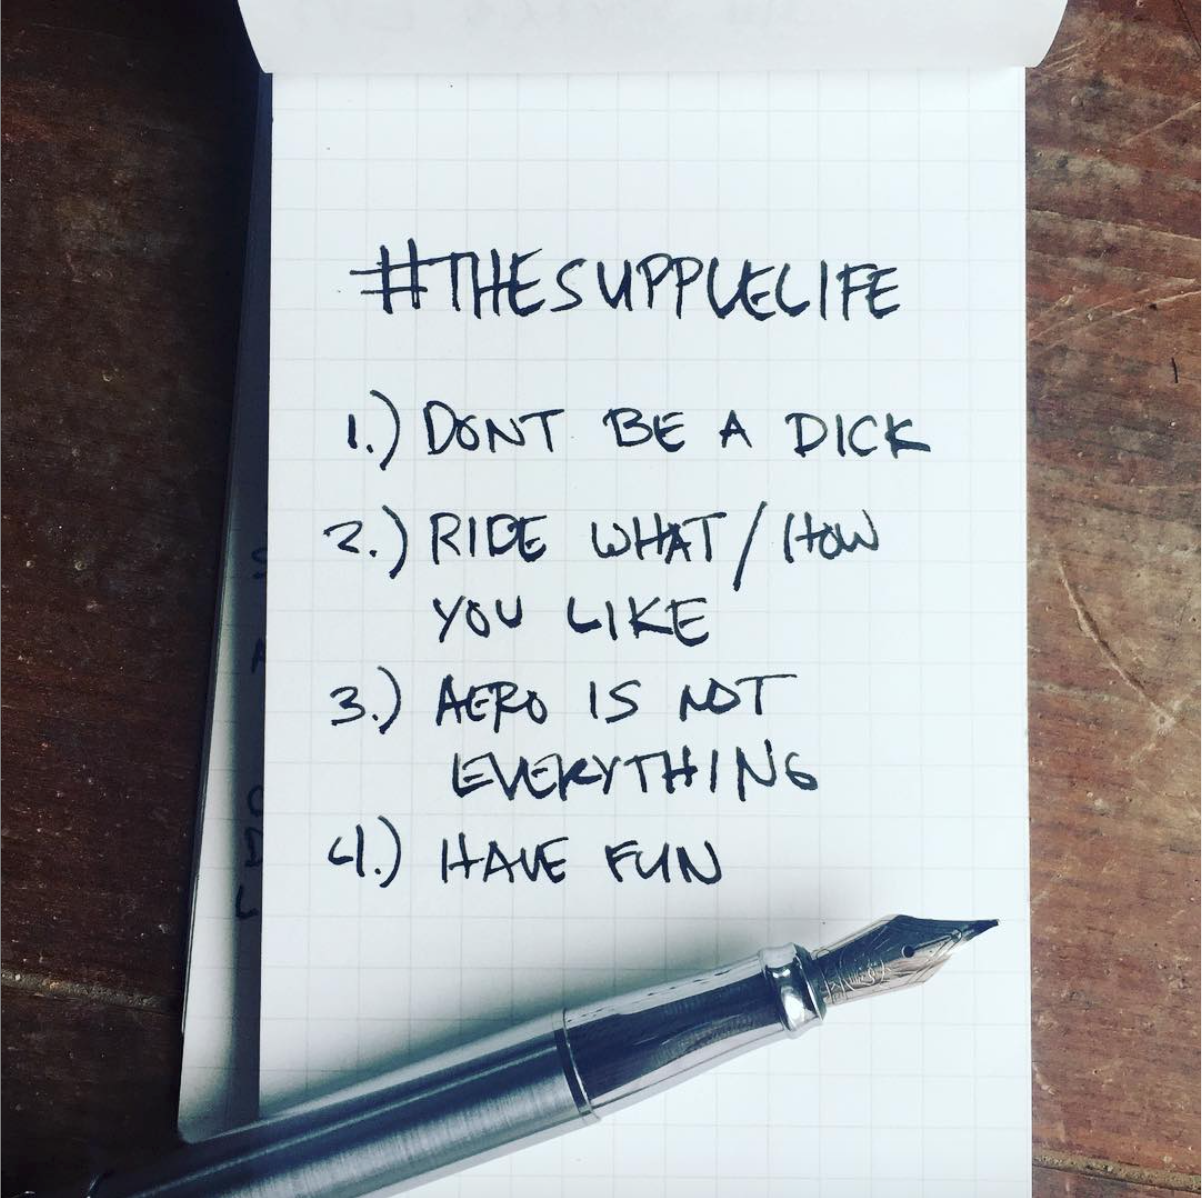 #THESUPPLELIFE
1.) DONT BE A DICK
2.) RIDE WHAT/HOW
YOU LIKE
3.) AERO IS NOT
EVERYTHING
4.) HAVE FUN